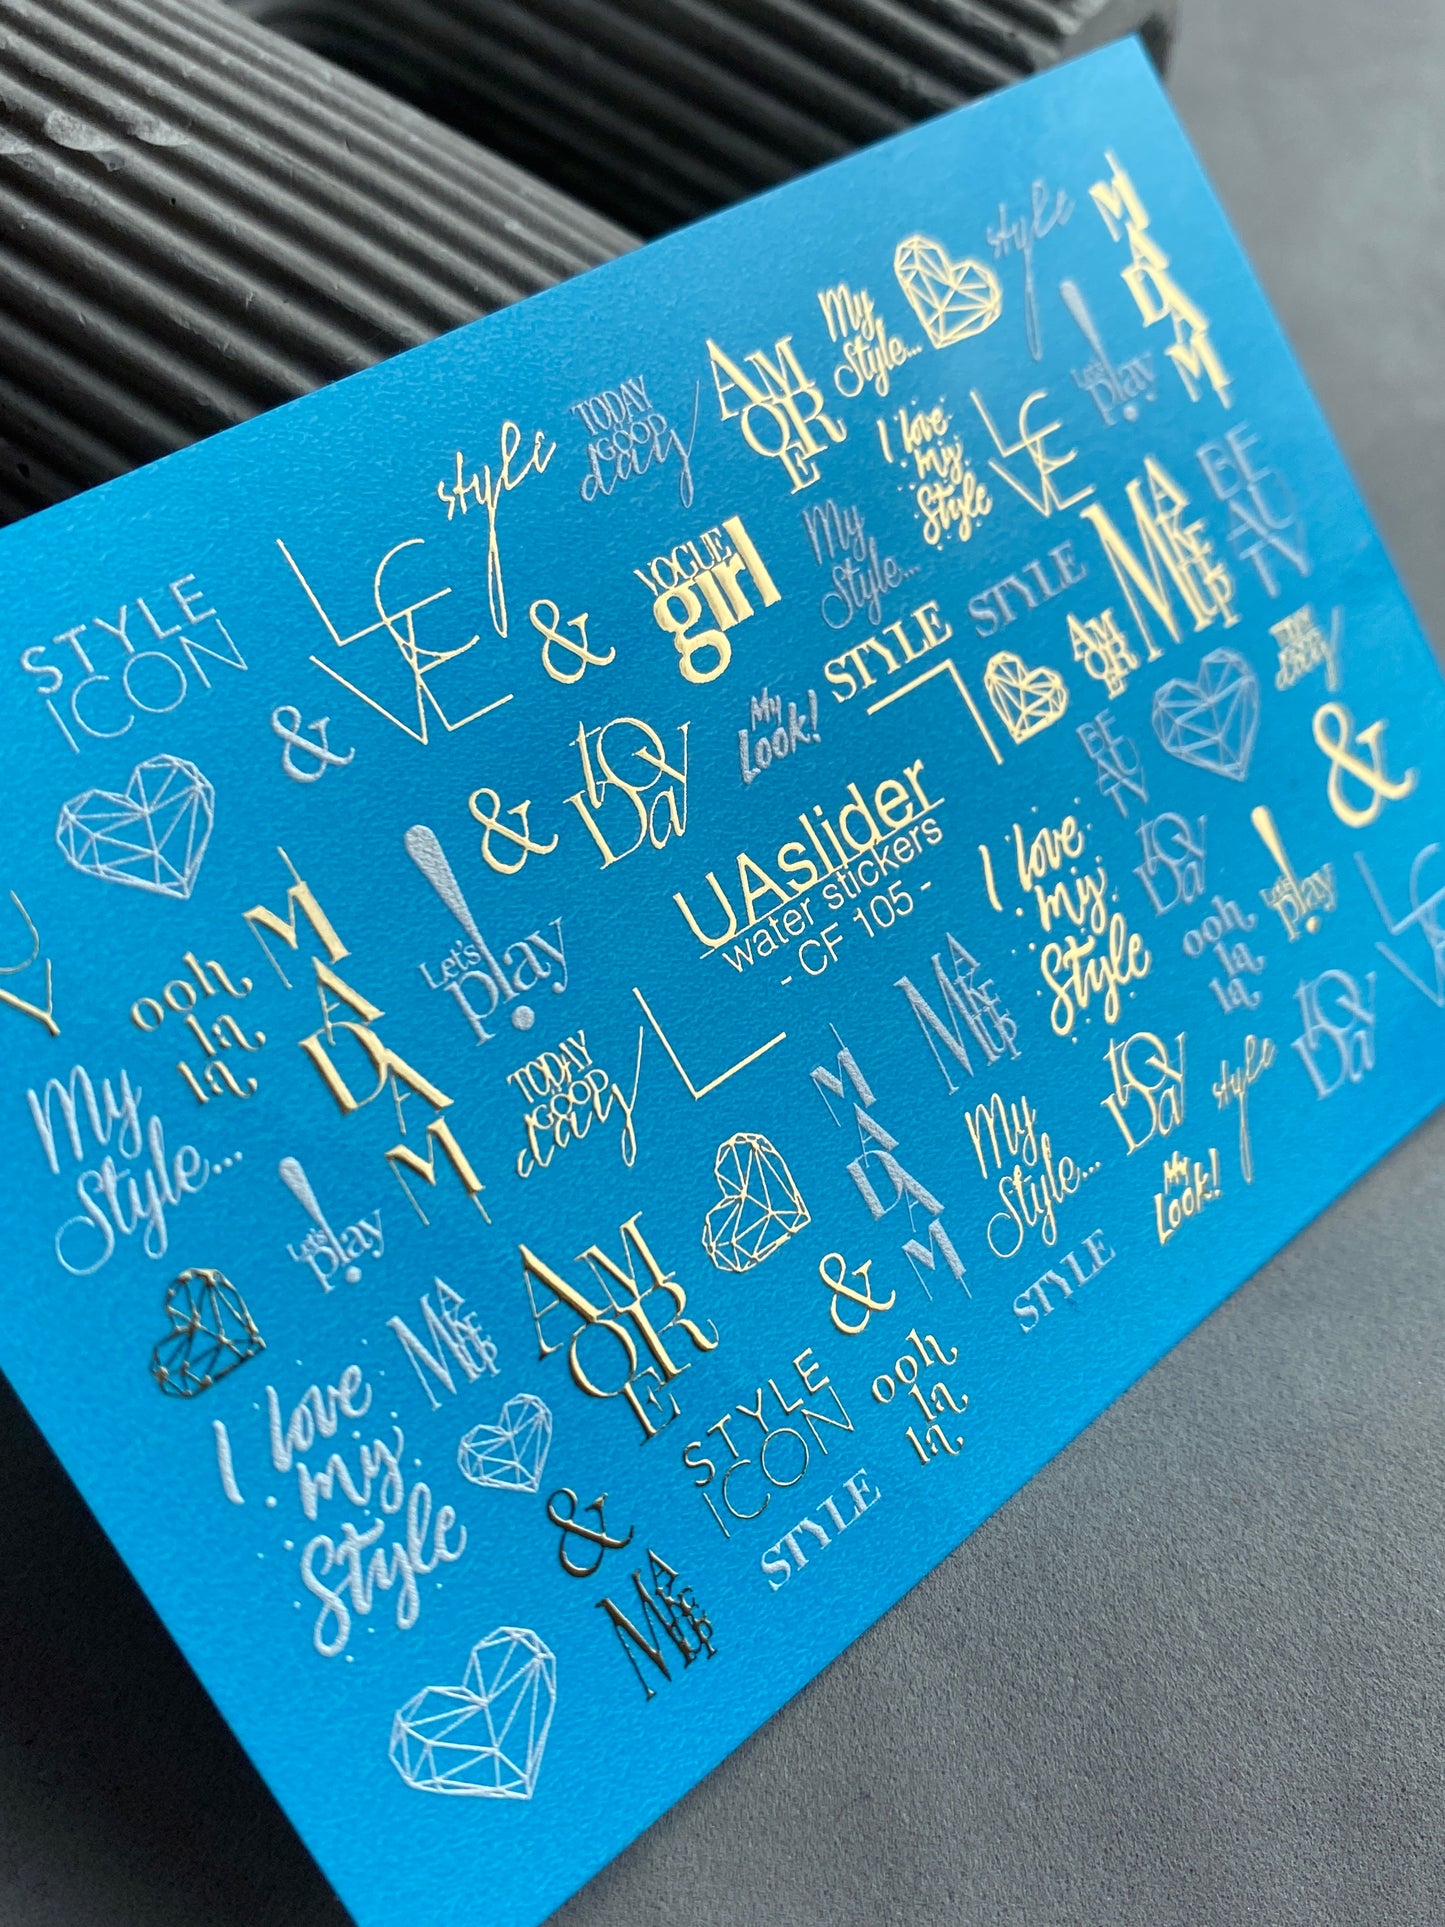 STYLE
ICON
LOVE
style
TODAY
GOOD
day
AMORE
My
Style...
style
MADAM
&
&
VOGUE
girl
My
Style...
I love
my
Style
LOVE
Let's
play
&
toDay
My
Look!
STYLE
STYLE
AMORE
MAKE UP
BEAUTY
ooh
la
la
MADAM
Let's
play
UAslider
water stickers
- CF 105 -
I love
my
Style
BEAUTY
toDay
&
My
Style...
Let's
play
TODAY
GOOD
day
MADAM
MAKE UP
ooh
la
la
Let's
play
I love
my
Style
MAKE UP
AMORE
&
My
Style...
toDay
style
toDay
&
MAKE UP
STYLE
ICON
ooh
la
la
STYLE
STYLE
My
Look!